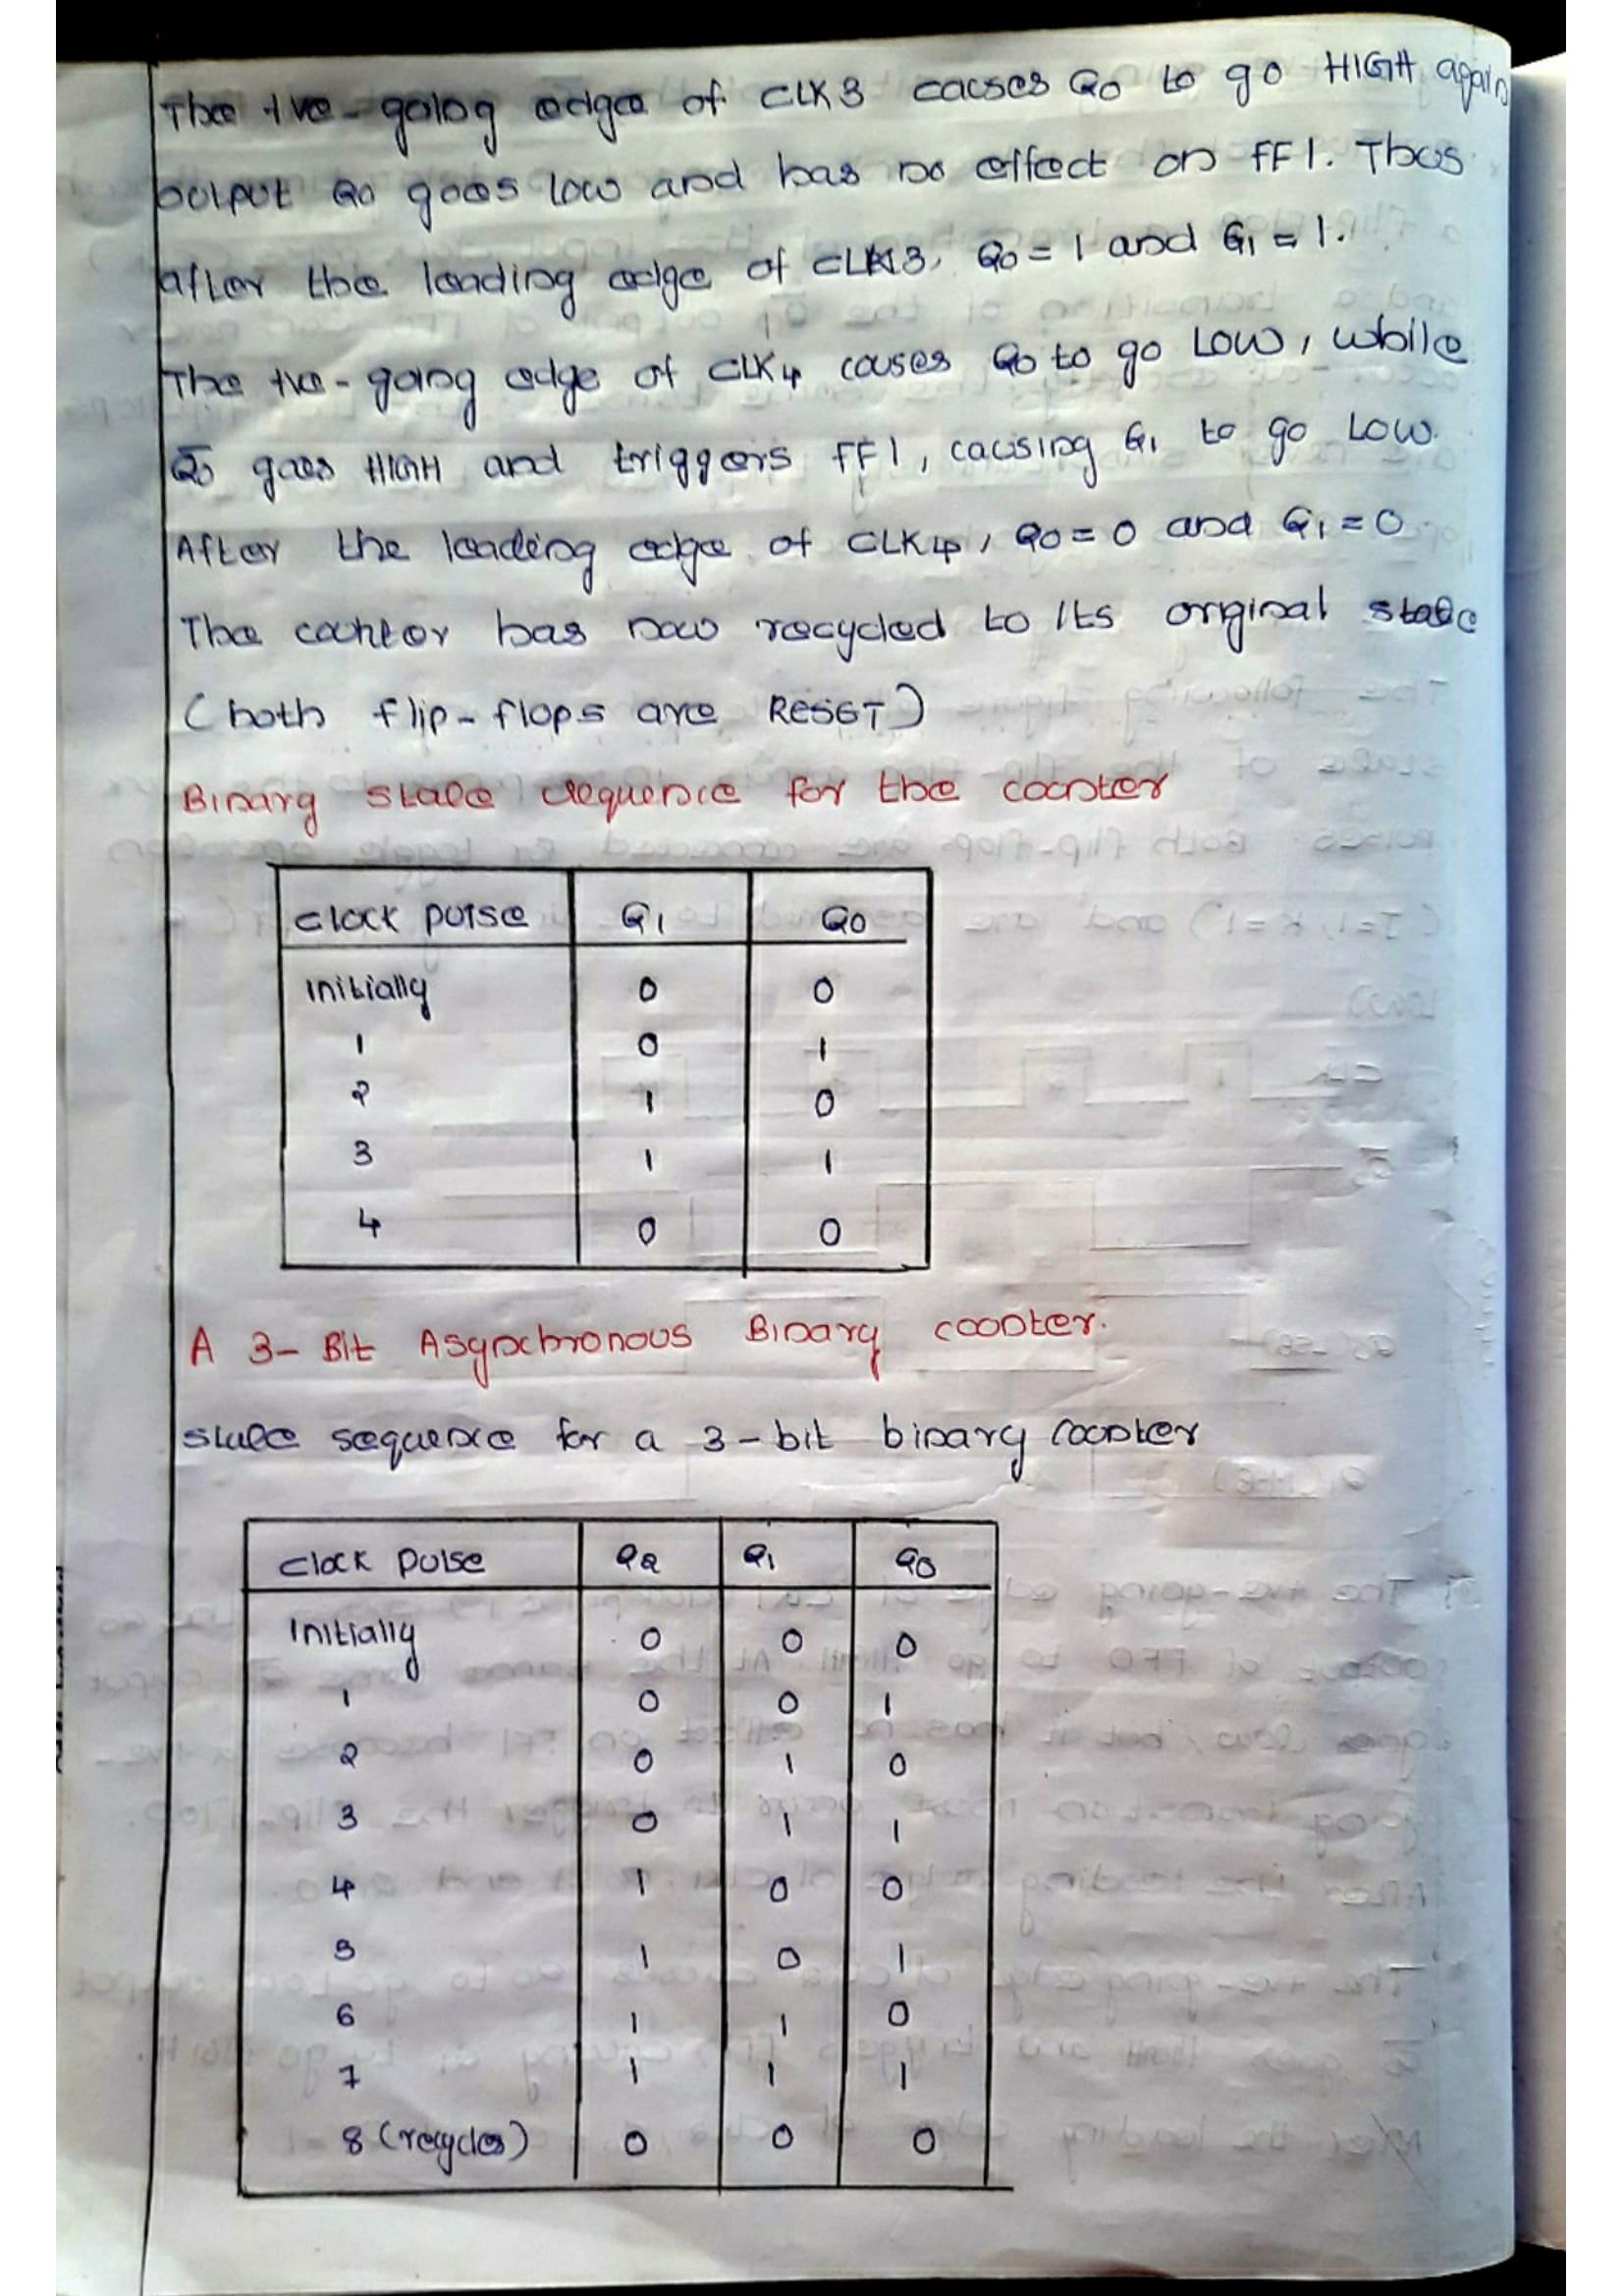 The +ve-going edge of CLK3 causes Q0 to go HIGH again
output Q0 goes low and has no effect on FF1. Thus
after the leading edge of CLK3, Q0 = 1 and Q1 = 1.
The +ve-going edge of CLK4 causes Q0 to go LOW, while
Q̅0 goes HIGH and triggers FF1, causing Q1 to go LOW.
After the leading edge of CLK4, Q0 = 0 and Q1 = 0.
The counter has now recycled to its original state
(both flip-flops are RESET)
Binary state sequence for the counter
Clock pulse Q1 Q0
Initially 0 0
1 0 1
2 1 0
3 1 1
4 0 0
A 3-Bit Asynchronous Binary counter.
state sequence for a 3-bit binary counter
Clock pulse Q2 Q1 Q0
Initially 0 0 0
1 0 0 1
2 0 1 0
3 0 1 1
4 1 0 0
5 1 0 1
6 1 1 0
7 1 1 1
8 (recycles) 0 0 0